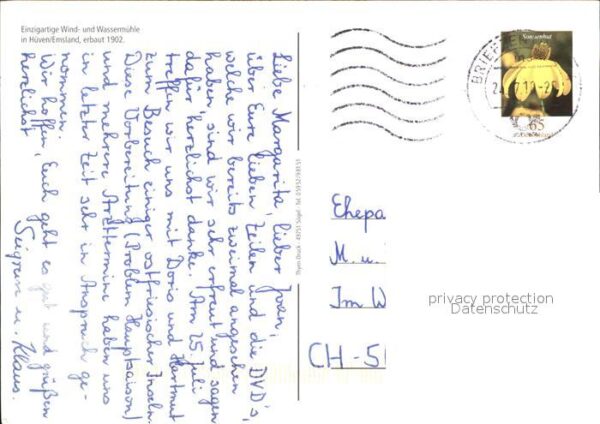 Einzigartige Wind- und Wassermühle
in Hüven/Emsland, erbaut 1902.
Liebe Margarita, lieber Ivan,
über Eure lieben Zeilen und die DVD's,
welche wir bereits zweimal angesehen
haben, sind wir sehr erfreut und sagen
dafür herzlichst danke. Am 25. Juli
treffen wir uns mit Doris und Hartmut
zum Besuch einiger ostfriesischer Inseln.
Diese Vorbereitung (Problem Hauptsaison)
und mehrere Arzttermine haben uns
in letzter Zeit sehr in Anspruch ge-
nommen.
Wir hoffen, Euch geht es gut und grüßen
herzlichst
Sigrun u. Klaus.
Thyen Druck · 49751 Sögel · Tel. 05952/93151
Sonnenhut
65
BRIEFZE
Ehepa
M. u.
Im W
CH-5
privacy protection
Datenschutz